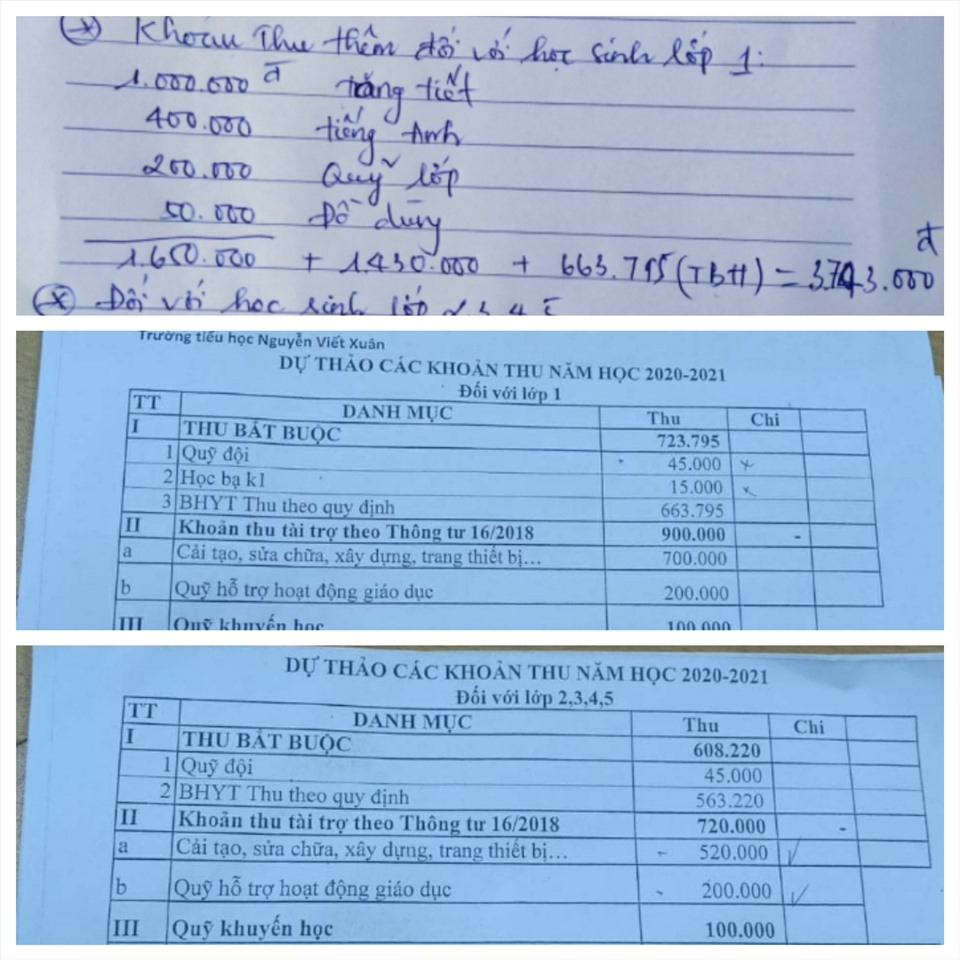 (*) Khoản Thu thêm đối với học sinh lớp 1:
1.000.000 đ tăng tiết
400.000 tiếng Anh
200.000 Quỹ lớp
50.000 Đồ dùng
1.650.000 + 1.430.000 + 663.795 (TBH) = 3.743.000 đ
(*) Đối với học sinh lớp 2,3,4,5
Trường tiểu học Nguyễn Viết Xuân
DỰ THẢO CÁC KHOẢN THU NĂM HỌC 2020-2021
Đối với lớp 1
TT DANH MỤC Thu Chi
I THU BẮT BUỘC 723.795
1 Quỹ đội 45.000
2 Học bạ k1 15.000
3 BHYT Thu theo quy định 663.795
II Khoản thu tài trợ theo Thông tư 16/2018 900.000 -
a Cải tạo, sửa chữa, xây dựng, trang thiết bị... 700.000
b Quỹ hỗ trợ hoạt động giáo dục 200.000
III Quỹ khuyến học 100.000
DỰ THẢO CÁC KHOẢN THU NĂM HỌC 2020-2021
Đối với lớp 2,3,4,5
TT DANH MỤC Thu Chi
I THU BẮT BUỘC 608.220
1 Quỹ đội 45.000
2 BHYT Thu theo quy định 563.220
II Khoản thu tài trợ theo Thông tư 16/2018 720.000 -
a Cải tạo, sửa chữa, xây dựng, trang thiết bị... 520.000
b Quỹ hỗ trợ hoạt động giáo dục 200.000
III Quỹ khuyến học 100.000